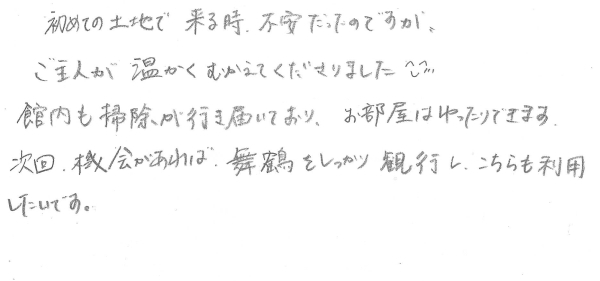 初めての土地で 来る時、不安だったのですが、
ご主人が 温かく むかえてくださりました ^^
館内も掃除が行き届いており、お部屋はゆったりできます。
次回、機会があれば、舞鶴をしっかり 観行し、こちらも利用
したいです。